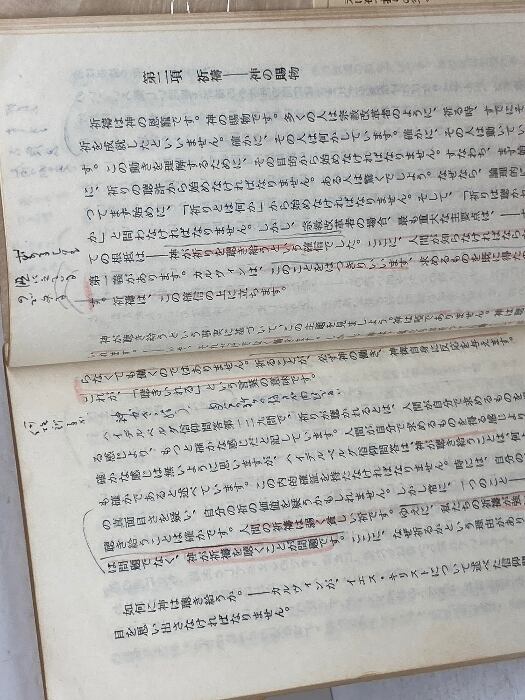 第二項　祈禱——神の賜物
祈禱は神の恩寵です。神の賜物です。多くの人は宗教改革者のように、祈る時、すでにそ
祈を成就したといいません。確かに、その人は何かしています。確かに、その人は働いて
す。この働きを理解するために、その目的から始めなければなりません。すなわち、まず始
に、祈りの聴許から始めなければなりません。ある人は驚くでしょう。なぜなら、論理的に
つてまず始めに、「祈りとは何か」から始めなければなりません。そして、「祈りは聴か
か」と問わなければなりません。しかし、宗教改革者の場合、最も重大な主要点は、——
ての根拠は——神が祈りを聴き給うとの確信でした。ここに、人間が知らなければならな
第一義があります。カルヴィンは、このことをはっきりいいます、求めるものを既に得た
す。祈禱は、この確信の上に立ちます。
神が聴き給うという事実に基づいて、この主題を見ましょう。神は聾でありません。神は聴
らなくても働くのではありません。祈ることが、必ず神の働き、神御自身に反応を与えます。
これが、「聴きいれる」という言葉の意味です。
ハイデルベルク信仰問答第一二九問で、祈りが聴かれるとは、人間が自分で求めるものを
る感じより、もっと確かな感じだと記しています。人間が自分で求めるものを得る感じより
確かな感じは無いように思いますが、ハイデルベルク信仰問答は神が聴き給うことは、何
も確かであると述べています。この内的確証を持たなければなりません。時には、自分の
の真面目さを疑い、自分の祈の価値を疑うかもしれません。しかし常に、一つのこと——
聴き給うことは確かです。人間の祈禱は弱く貧しい祈です。ゆえに、私たちの祈禱が強
は問題でなく、神が祈禱を聴くことが問題です。ここに、なぜ祈るかという理由があ
如何に神は聴き給うか。——カルヴィンが、イエス・キリストについて述べた信仰問
目を思い出さなければなりません。